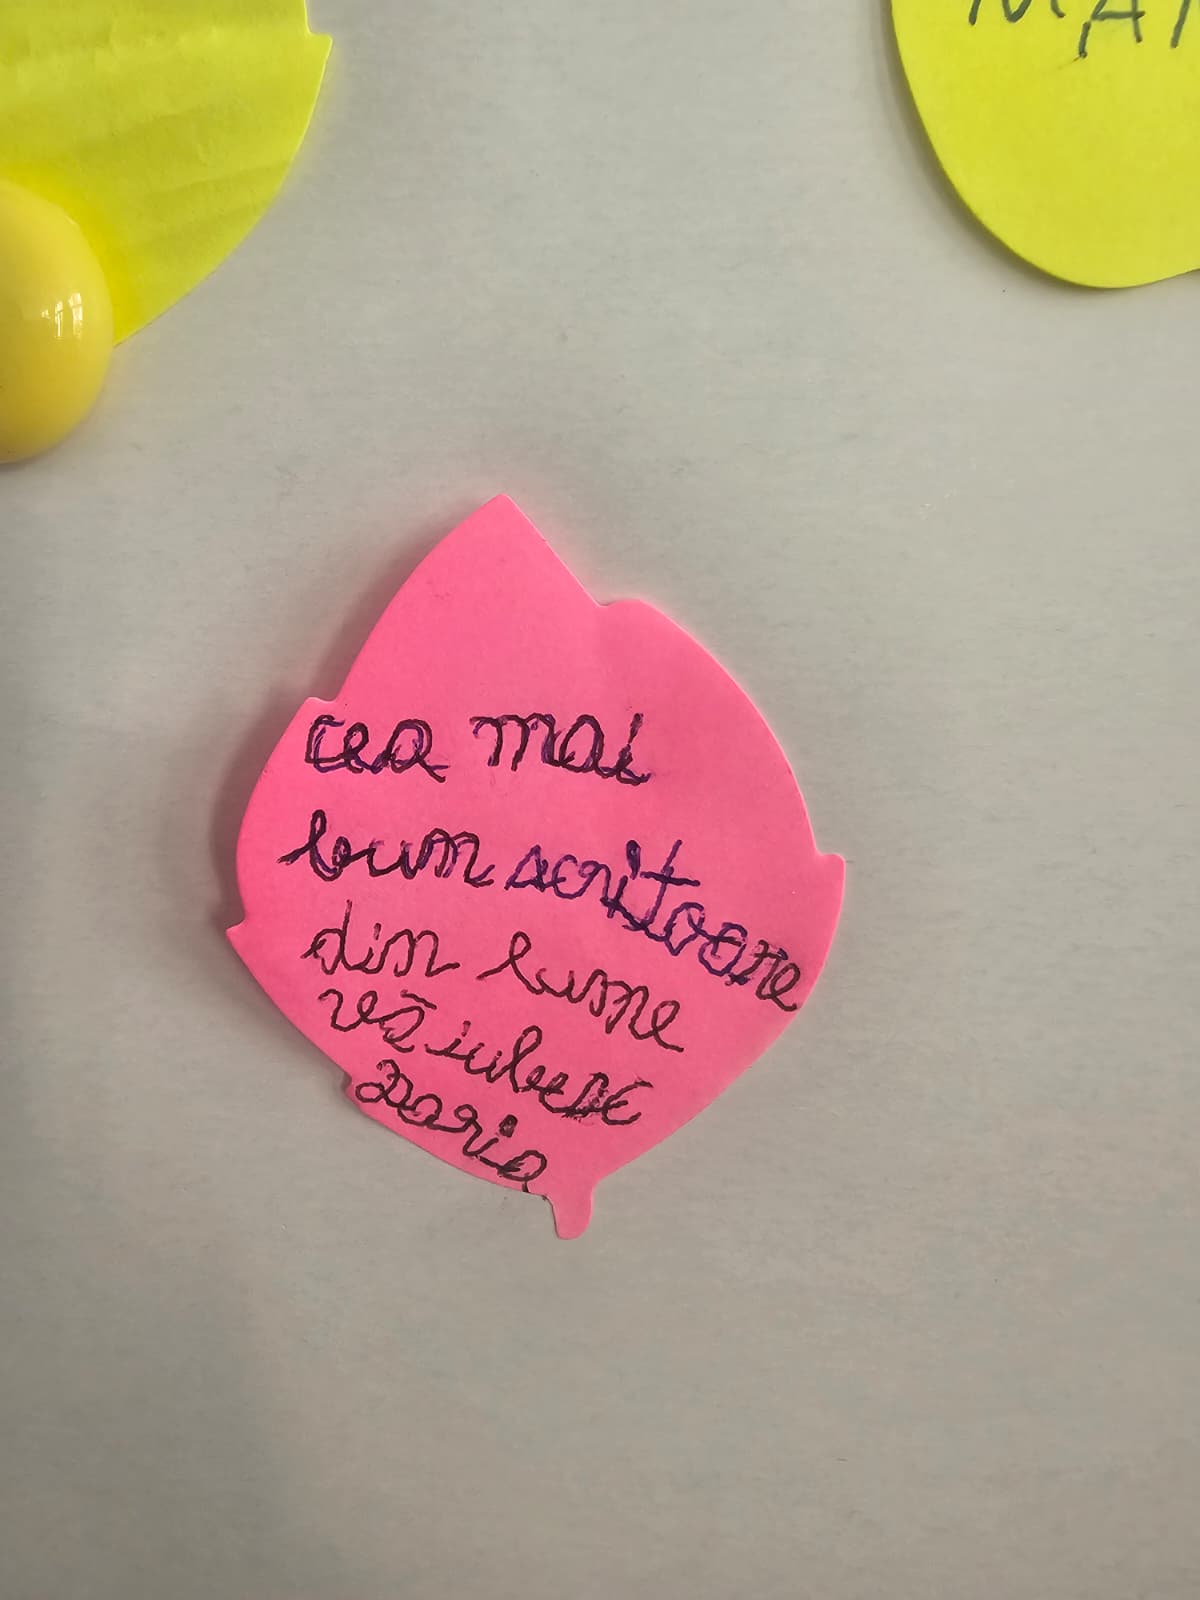 MAI
cea mai
bun scritoare
din lume
vă iubesc
Daria